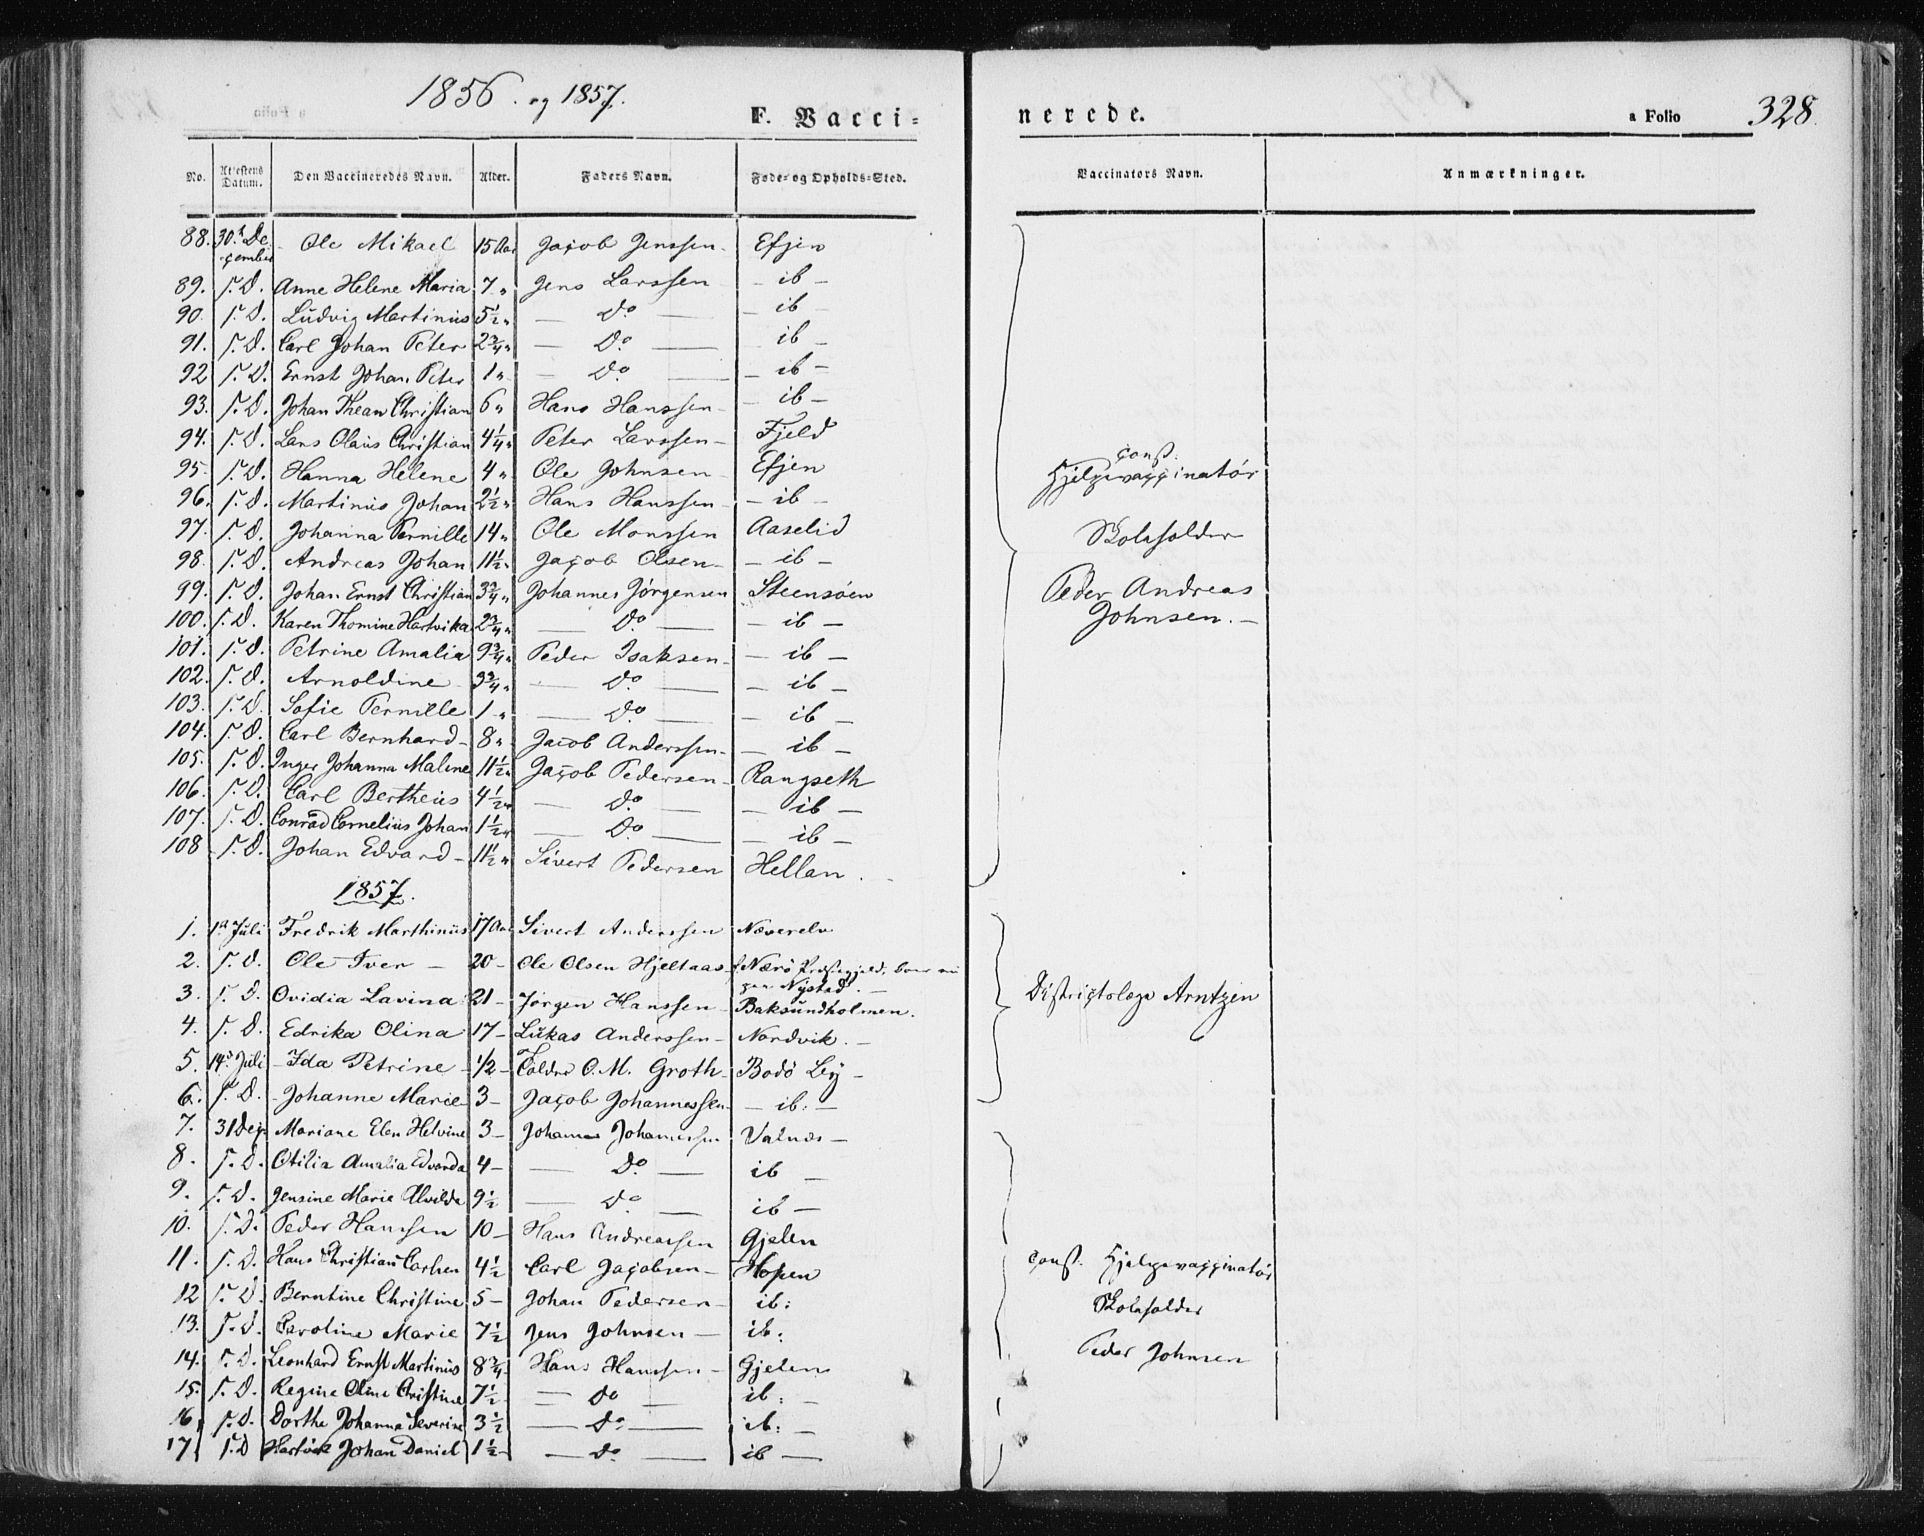 1856. og 1857.
F. Vacci=
nerede.
a Folio 328
No. Attestens Datum. Den Vaccineredes Navn. Alder. Faders Navn. Føde- og Opholds-Sted.
Vaccinators Navn. Anmærkninger.
88. 30te December Ole Mikael 15 Aar Jacob Jenssen Efjen
89. s. D. Anne Helene Maria 7 " Jens Larssen – ib –
90. s. D. Ludvig Martinus 5 1/2 " — Do — – ib –
91. s. D. Carl Johan Peter 2 3/4 " — Do — – ib –
92 s. D. Ernst Johan Peter 1 " — Do — – ib –
93. s. D. Johan Thean Christian 6 " Hans Hanssen – ib –
94. s. D. Lars Olaus Christian 4 1/4 " Peter Larssen – Fjeld
95. s. D. Hanna Helene 4 " Ole Johnsen Efjen
96. s. D. Martinus Johan 2 1/2 " Hans Hanssen – ib –
97. s. D. Johanna Pernille 14 " Ole Monssen Aaselid
98. s. D. Andreas Johan 11 1/2 " Jacob Olsen – ib –
99. s. D. Johan Ernst Christian 3 3/4 " Johannes Jørgensen Steensöen
100. s. D. Karen Thomine Hartvika 2 3/4 " — Do — – ib –
101. s. D. Petrine Amalia 9 3/4 " Peder Isaksen – ib –
102. s. D. Arnoldine 3 3/4 " — Do. — – ib –
103. s. D. Sofie Pernille 1 " — Do — – ib –
104. s. D. Carl Bernhard 8 " Jacob Anderssen – ib –
105. s. D. Inger Johanna Maline 11 1/2 " Jacob Pedersen Rangseth
106. s. D. Carl Bertheus 4 1/2 " — Do. — – ib –
107. s. D. Conrad Cornelius Johan 1 1/2 " — Do. — – ib –
108 s. D. Johan Edvard 11 1/2 " Sivert Pedersen Hellan.
const.
Hjelpevaccinatör
Skoleholder
Peder Andreas
Johnsen.
1857.
1. 1ste Juli Fredrik Marthinus 17 Aar Sivert Anderssen Næverelv
2. s. D. Ole Iver 20 – Ole Olsen Hjeltaas Nærö Præstegjeld, boer nu paa Nystad.
3. s. D. Ovidia Lavina 21 – Jørgen Hanssen Baksundholmen.
4. s. D. Edrika Olina 17 – Lukas Anderssen Nordvik.
5. 14de Juli Ida Petrine 1/2 – Tolder O. M. Groth Bodö By
6. s. D. Johanne Marie 3 – Jacob Johannessen – ib: –
Districtslæge Arntzen
7. 31 Dec Mariane Elen Helvine 3 – Johannes Johannessen Valnæs –
8. s. D. Otilia Amalia Edvarda 4 – — Do — ib –
9. s. D. Jensine Marie Alvilde 9 1/2 — Do — ib –
10. s. D. Peder Hanssen 10 – Hans Andreassen Gjelen
11. s. D. Hans Christian Carlsen 4 1/2 Carl Jacobsen – Hopen
12 s. D. Berntine Christine 5 – Johan Pedersen – ib:
13. s. D. Caroline Marie 7 1/2 Jens Johnsen – ib:
14. s. D. Leonhard Ernst Martinus 8 3/4 Hans Hanssen – Gjelen
15. s. D. Regine Oline Christine 7 1/2 — Do — ib: –
16. s. D. Dorthe Johanna Severine 3 1/2 — Do. — ib: –
17. s. D. Hartvik Johan Daniel 1 1/2 – — Do. — ib –
const. Hjelpevaccinatör
Skoleholder
Peder Johnsen